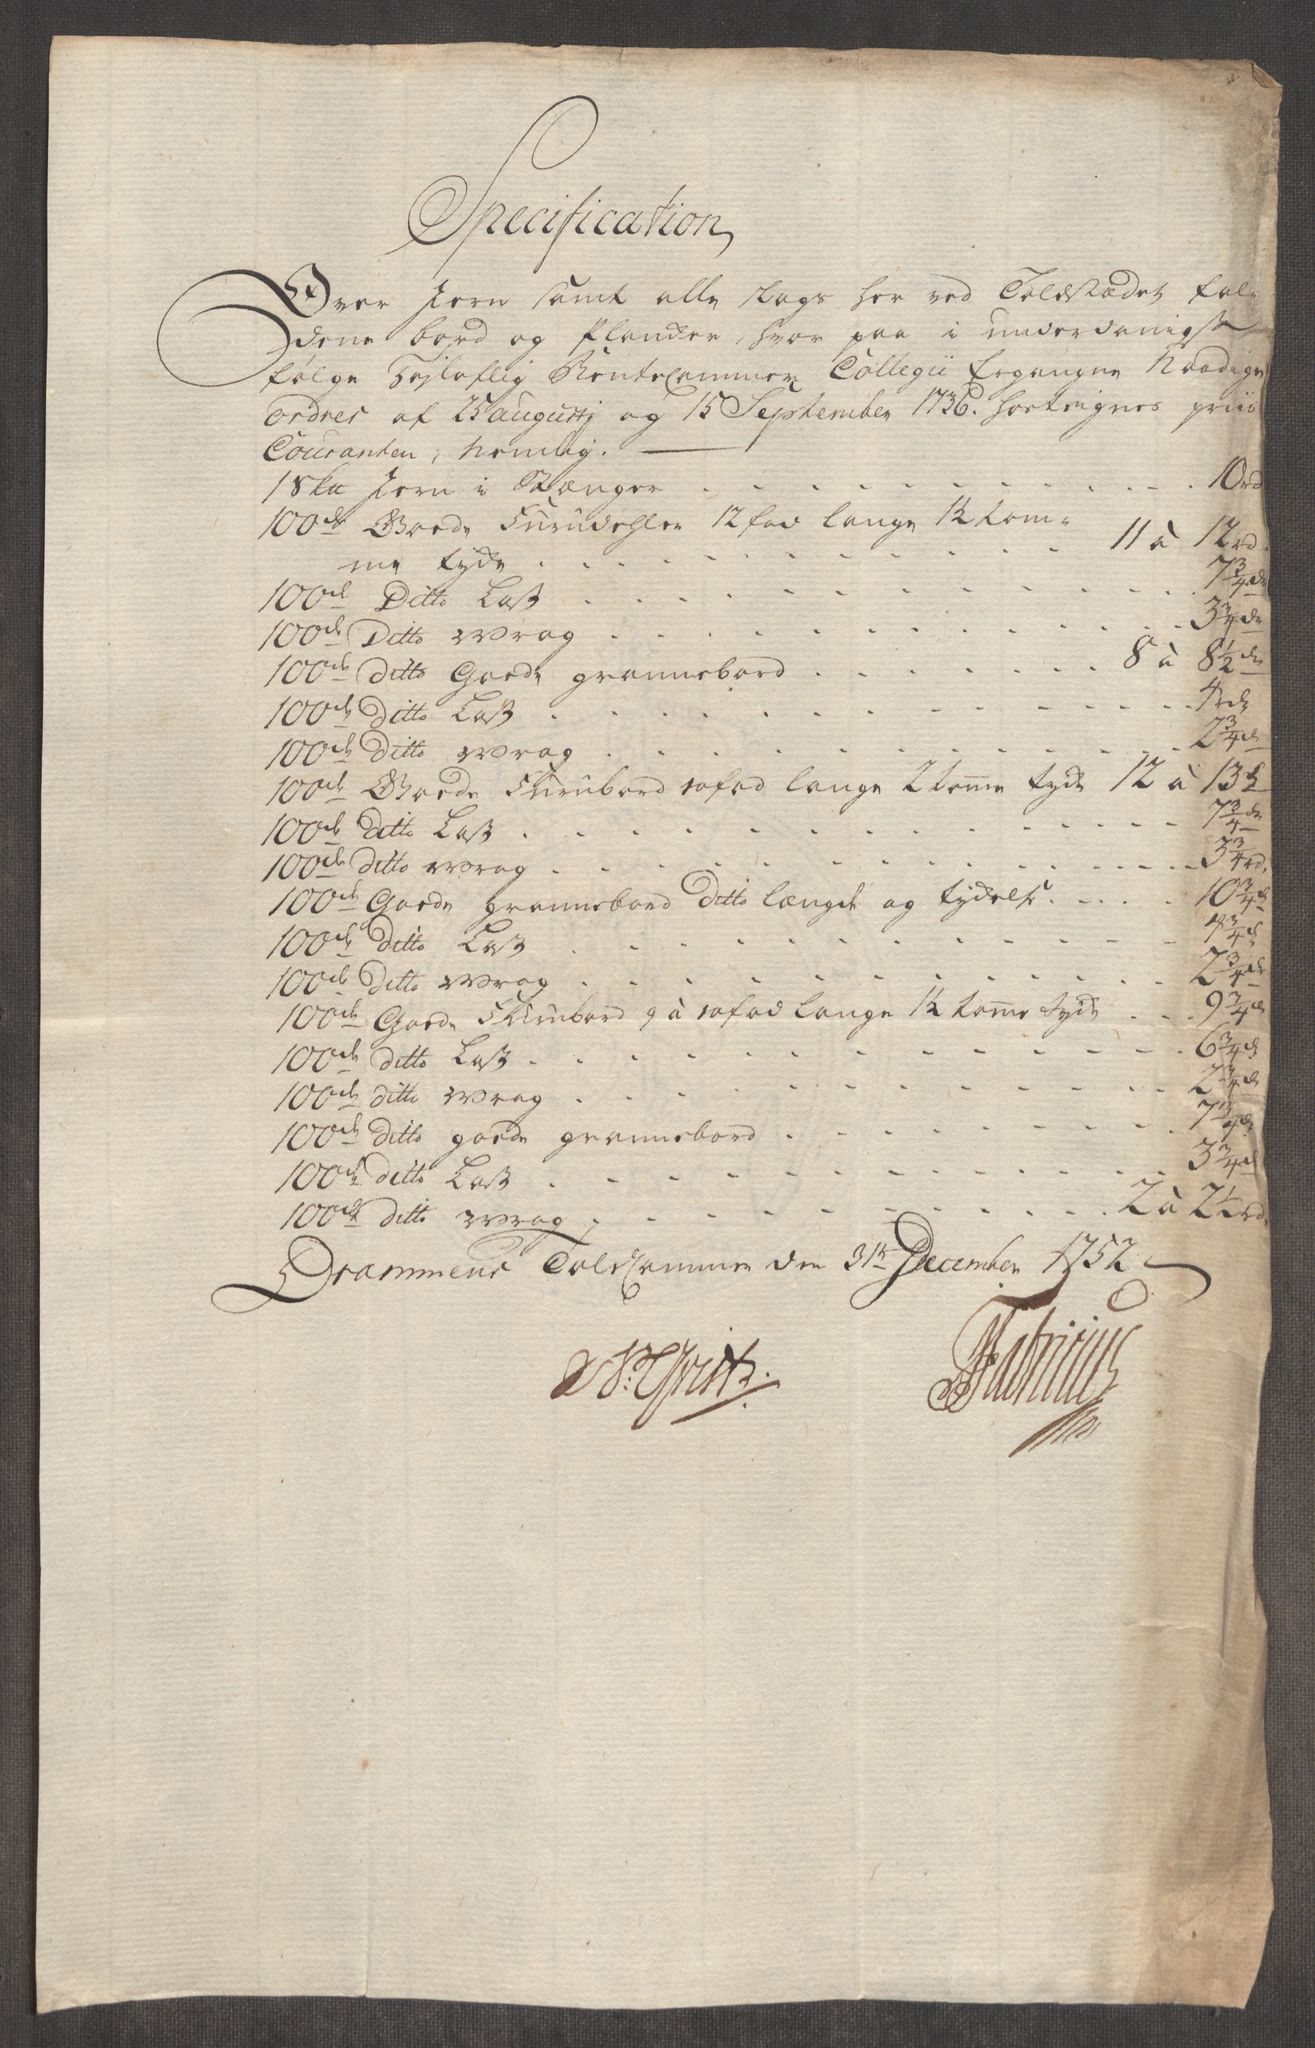 Specification
Over Jern samt alle slags her ved Toldstædet fal-
dene bord og Plancker, hvor paa i underdanigst
følge Højloflig Rentecammer Collegii Ergangne Naadige
ordres af 25 augustj og 15 September 1736. hosteignes priis
Couranten, nemlig.
1 Sku Jern i Stænger 10 rd
100de Goede Furudehler 12 fod lange 1½ tom-
me tyde 11 à 12 rd.
100de Ditto Last 7¾ de
100de Ditto Wrag 3¾ de
100de ditto Goede grannebord 8 à 8½ de
100de ditto Last 4 rd
100de ditto Wrag 2¾ de
100de Goede Furubord 10 fod lange 2 tome tyde 12 à 13 de
100de ditto Last 7¾ de
100de ditto Wrag 3¾ rd.
100de Goede grannebord Ditto længde og tydelse 10¾ de
100de ditto Last 4¾ de
100de ditto Wrag 2¾ de
100de Goede Furubord 9 à 10 fod lange 1½ tome tyde 9¾ de
100de ditto Last 6¾ de
100de ditto Wrag 2¾ de
100de ditto goede grannebord 7¾ de
100de ditto Last 3¾ de
100de ditto Wrag 2 à 2½ rd.
Drammens Told Cammer den 31te December 1752
Fabricius